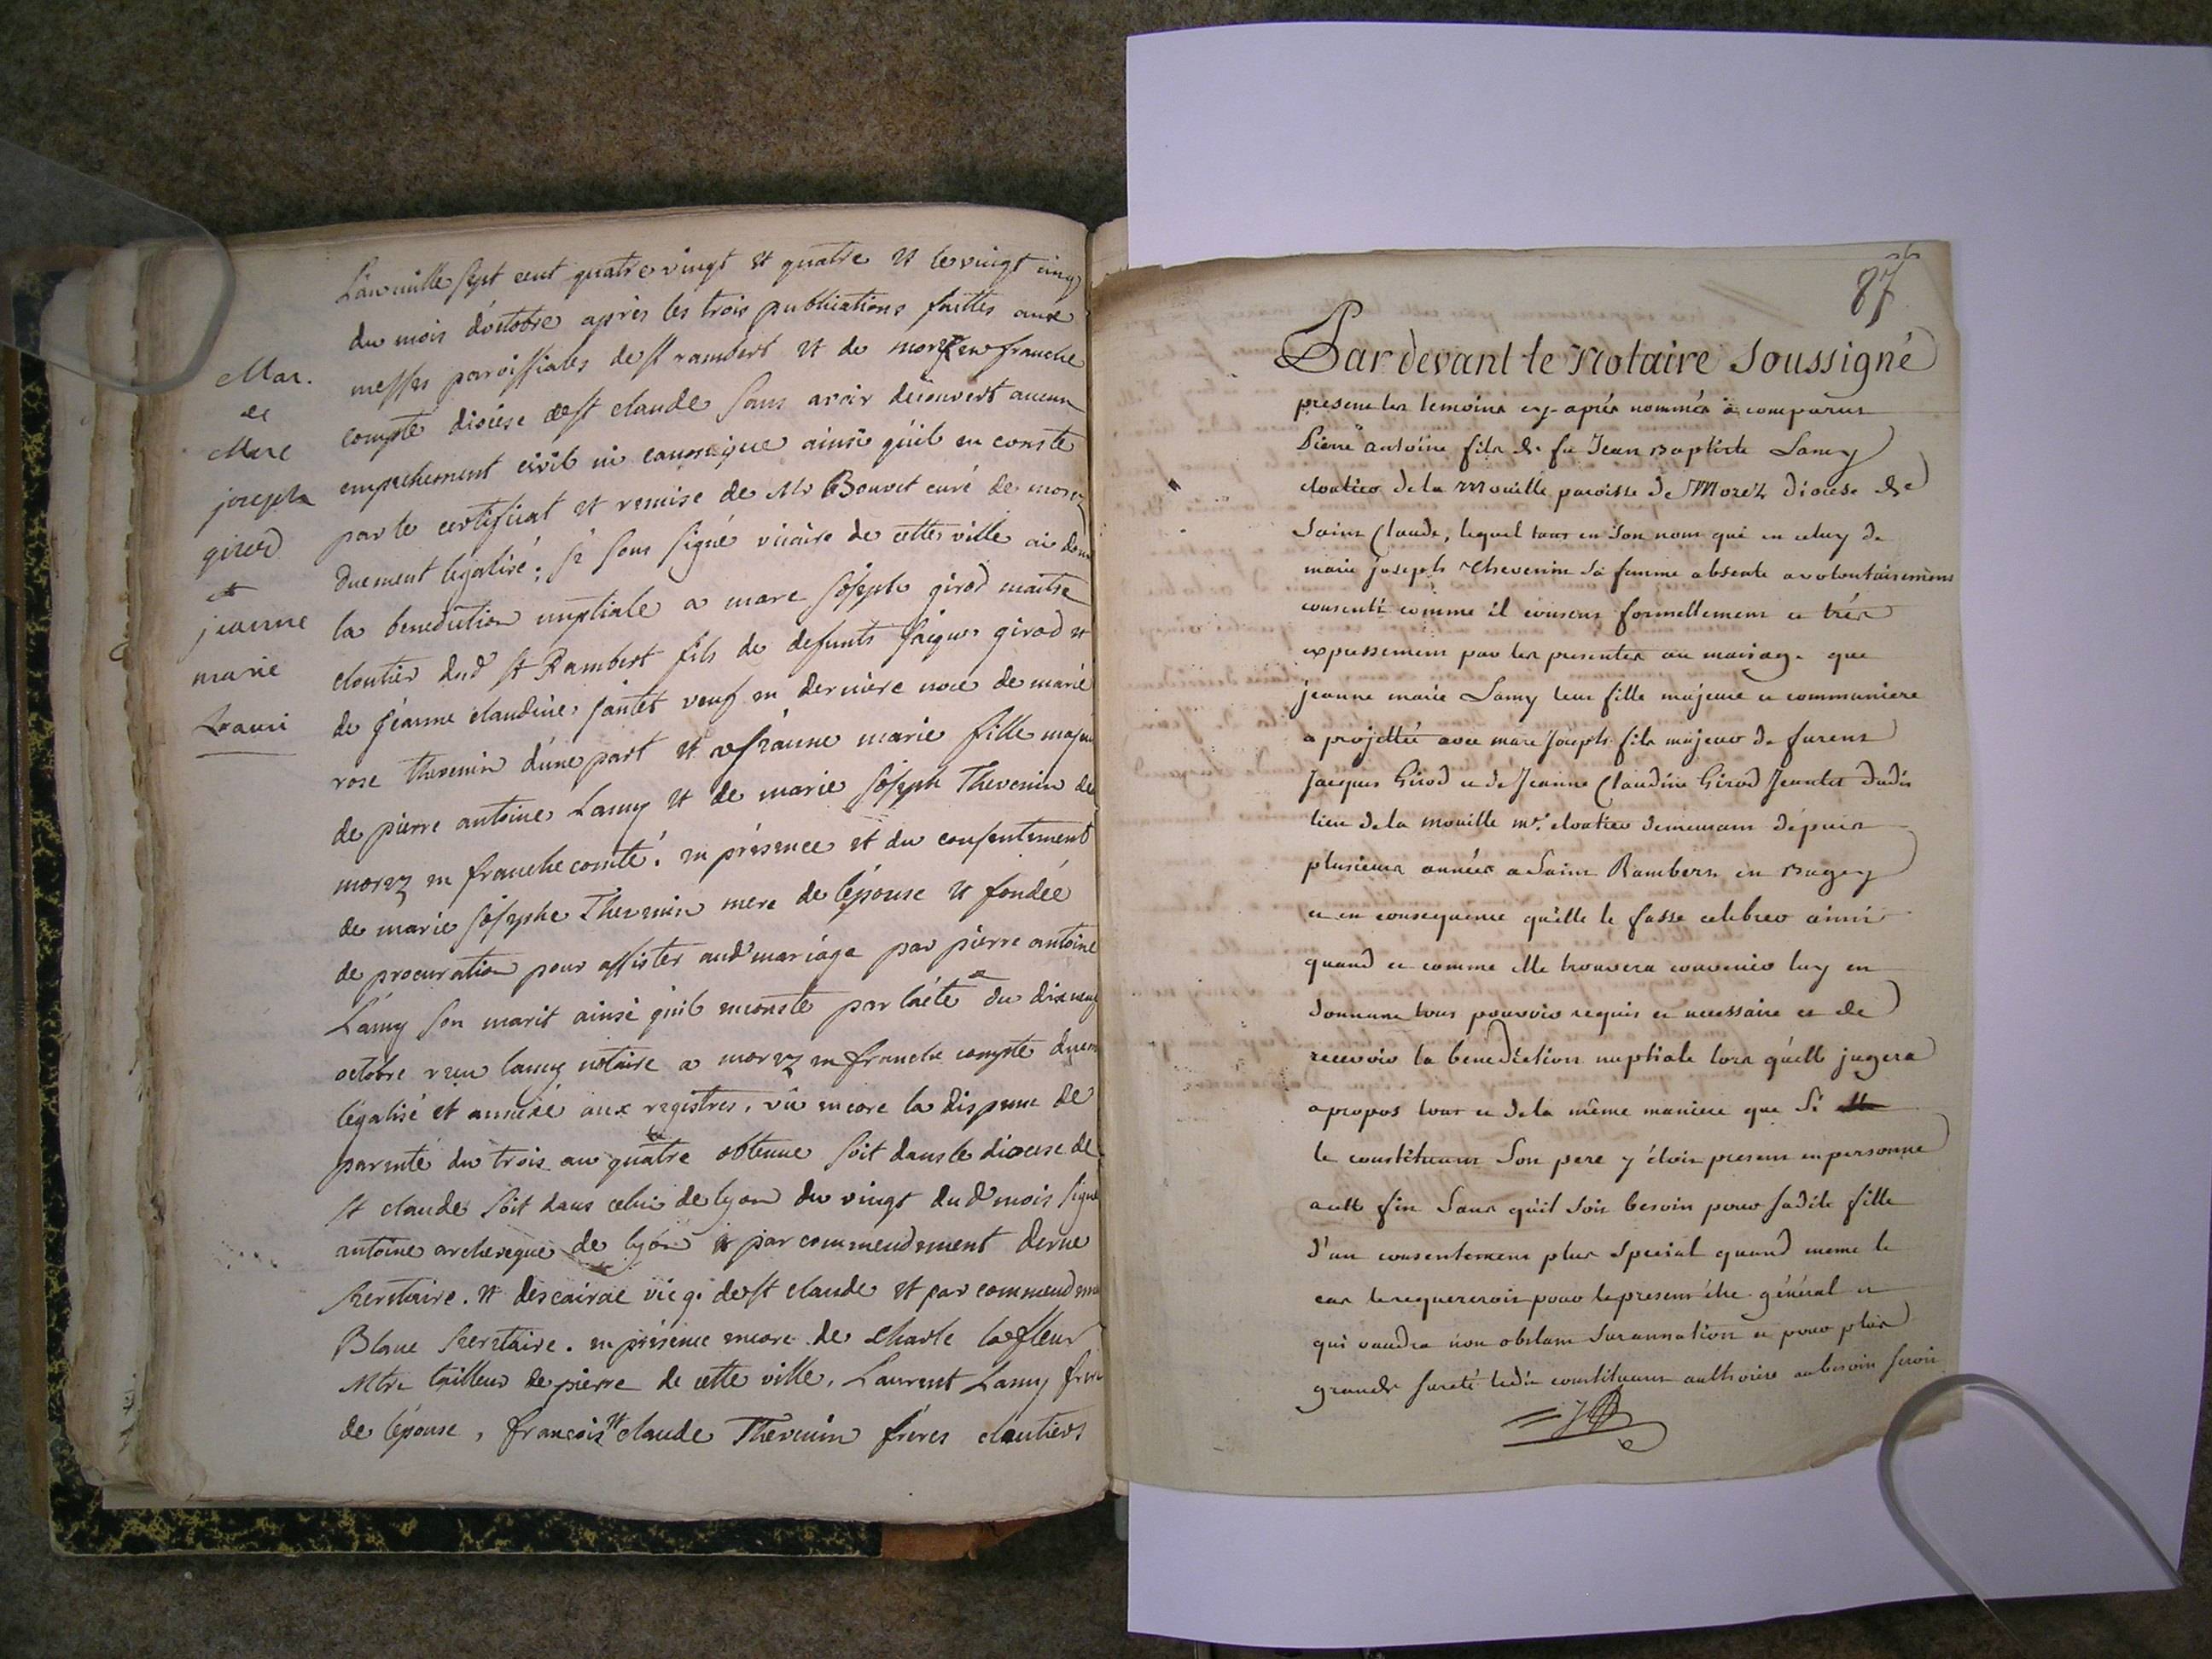 Mar.
de
Marc
joseph
girod
et
jeanne
marie
Lami
L'an mille sept cent quatre vingt et quatre et le vingt cinq
du mois d'octobre après les trois publications faittes aux
messes paroissiales de st rambert et de morez en franche
compté diocese de st claude sans avoir découvert aucun
empechement civil ni canonique ainsi qu'il en conste
par le certificat et remise de Mr Bouvet curé de morez
duement legalisé; je sous signé vicaire de cette ville ai donné
la benediction nuptiale a marc joseph girod maitre
cloutier dud st Rambert fils de defunts jaques girod et
de jéanne claudine jantet veuf en derniere noce de marie
rose thevenin d'une part et a jeanne marie fille majeure
de pierre antoine Lamy et de marie joseph Thevenin de
morez en franche comté. en présence et du consentement
de marie josephe Thevenin mere de l'épouse et fondée
de procuration pour assister aud mariage par pierre antoine
Lamy son marit ainsi qu'il en conste par l'acte du dix neuf
octobre reçu lamy notaire a morez en franche compté duement
légalisé et annexé aux registres. vû encore la dispense de
parenté du trois au quatre obtenue soit dans le diocese de
st claude soit dans celui de lyon du vingt dud mois signé
antoine archeveque de lyon et par commendement
secretaire. et descairac vic g. de st claude et par commendement
Blanc secretaire. en présence encore de charle lafleur
Mtre tailleur de pierre de cette ville, Laurent Lamy frere
de l'épouse, françois et claude Thevenin fréres cloutiers
87
Par devant le Notaire Soussigné
present les temoins cy-après nommés à comparut
Pierre antoine fils de fu Jean Baptiste Lamy
cloutier de la Mouille paroisse de Morez diocese de
Saint Claude, lequel tant en son nom qui en celuy de
marie joseph Thevenin sa femme absente a volontairement
consenti comme il consent formellement et très
expressement par les presentes au mariage que
jeanne marie Lamy leur fille majeure et communiere
a projettée avec marc joseph fils majeur de furent
Jacques Girod et de Jeanne Claudine Girod Jeantet dudit
lieu de la mouille mr. cloutier demeurant dépuis
plusieurs années a Saint Rambert en Bugey
et en consequence qu'elle le fasse celebrer ainsi
quand et comme elle trouvera convenir luy en
donnant tous pouvoir requis et necessaire et de
recevoir la benediction nuptiale lors qu'elle jugera
apropos tout et de la même maniere que si
le constituant Son pere y étoit present en personne
a cette fin sans qu'il soit besoin pour sadite fille
d'un consentement plus special quand meme le
cas le requereroit pour le present étre général et
qui vaudra non obstant surannation et pour plus
grande sureté ledit constituant authorise au besoin